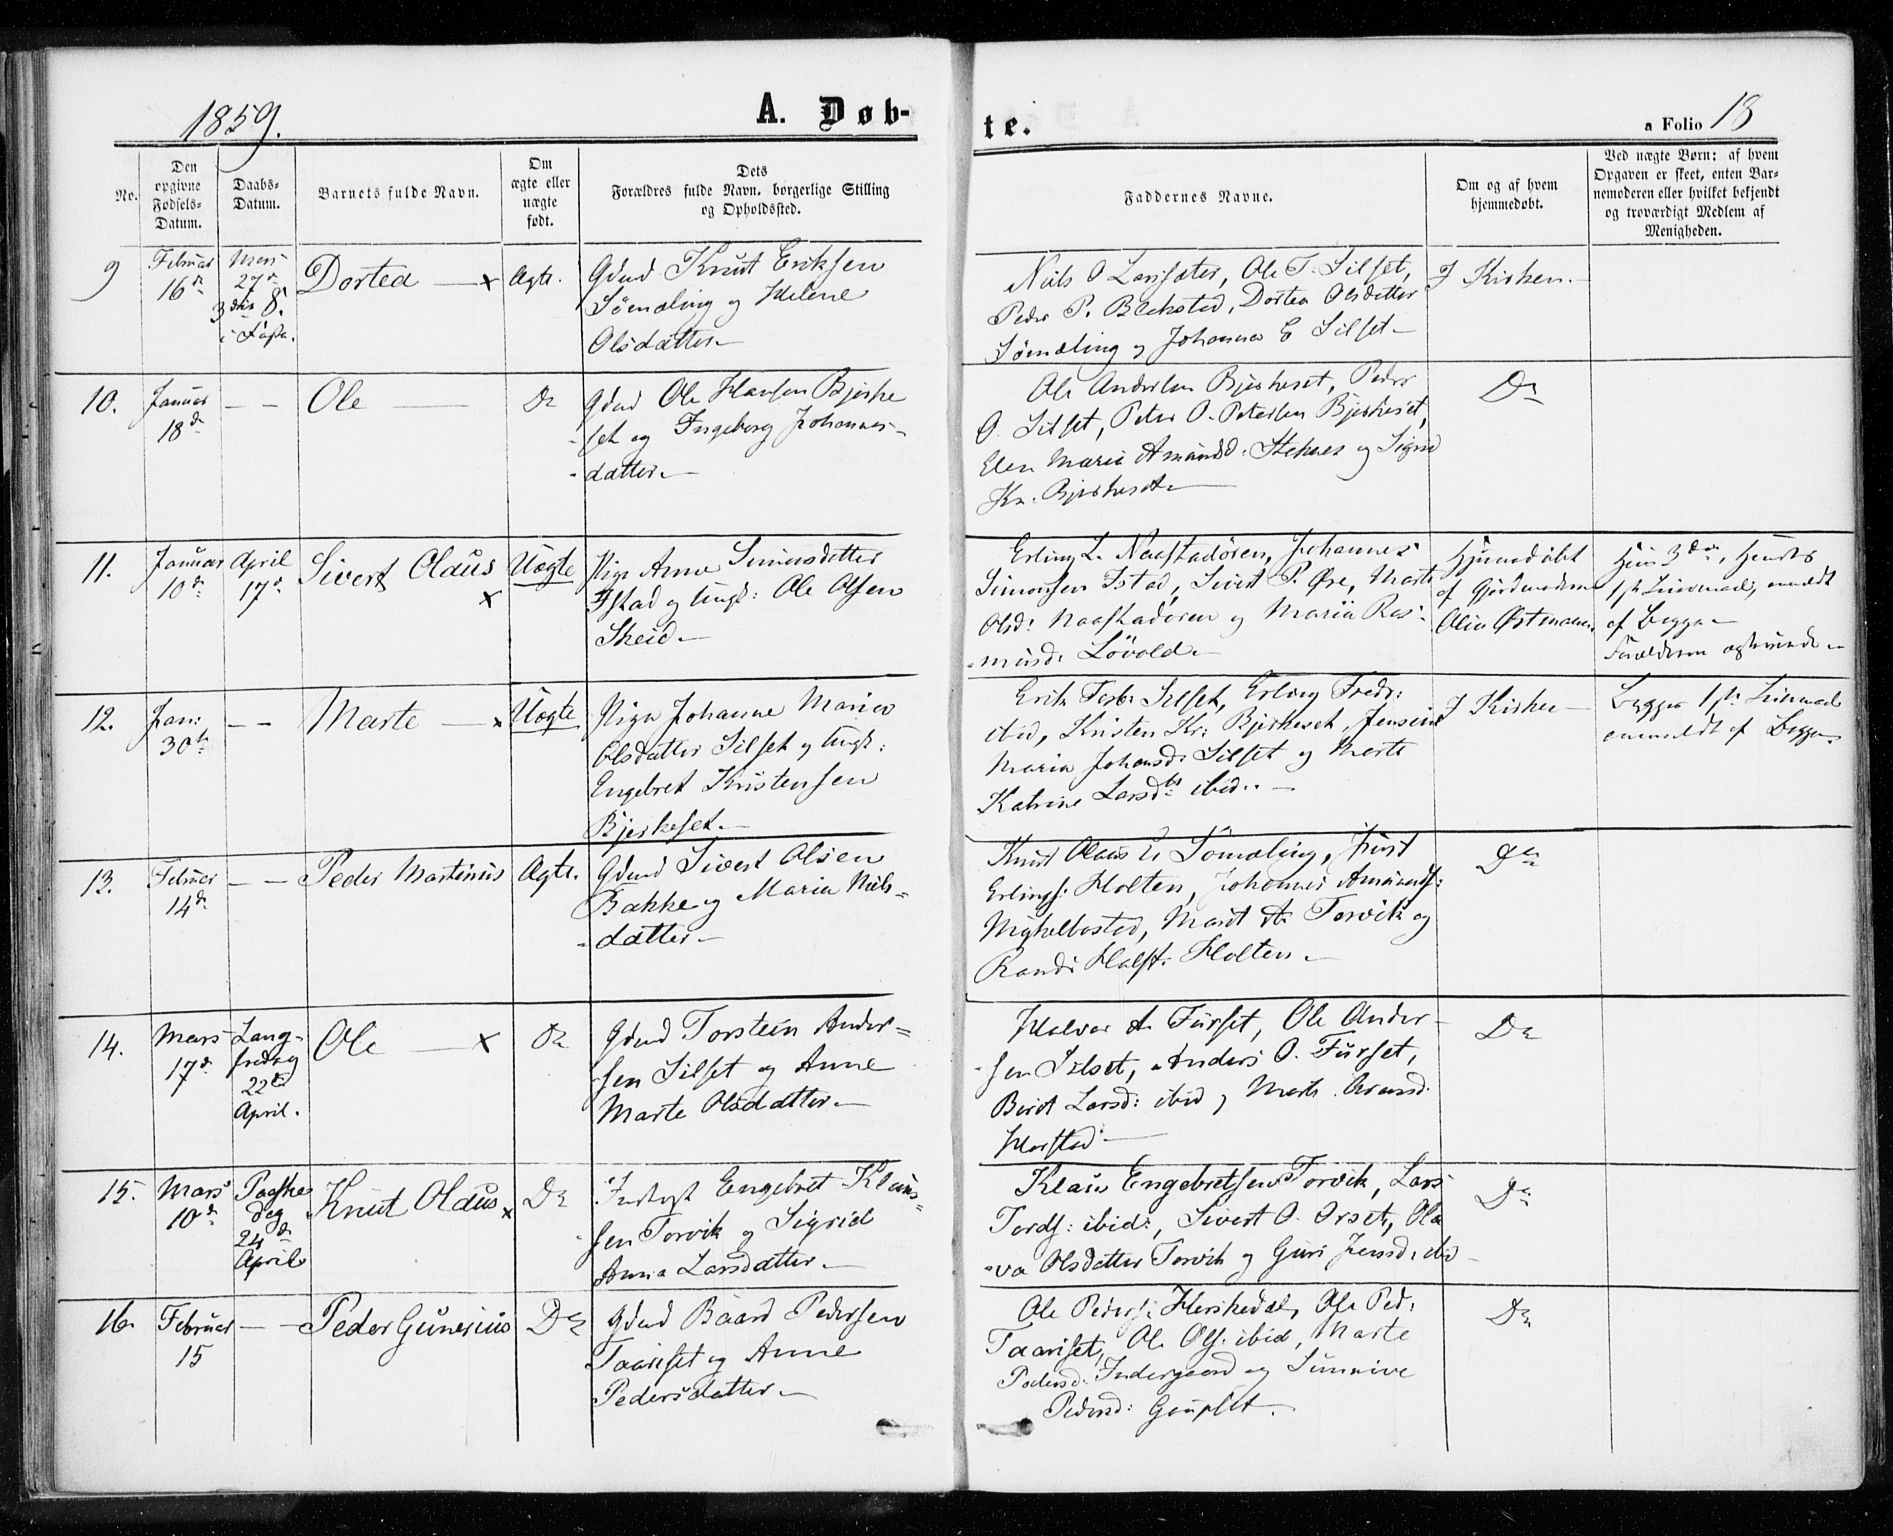 1859.
A. Døb-
te.
a Folio 18
No.
Den opgivne Fødsels-Datum.
Daabs-Datum.
Barnets fulde Navn.
Om ægte eller uægte født.
Dets Forældres fulde Navn, borgerlige Stilling og Opholdssted.
Faddernes Navne.
Om og af hvem hjemmedøbt.
Ved uægte Børn: af hvem Opgaven er skeet, enten Barnemoderen eller hvilket bekjendt og troværdigt Medlem af Menigheden.
9
Februar 16de
Mars 27de
3die S.
i Faste.
Dortea — x
Ægte.
Gdmd Knut Eriksen
Sömeling og Helene
Olsdatter
Niels O Larssæter, Ole T. Silset,
Peder P. Blekstad, Dortea Olsdatter
Sömeling og Johanna E Silset
I Kirken.
10.
Januar 18de
— —
Ole —
Do
Gdmd Ole Hansen Bjerke
set og Ingeborg Johannes-
datter
Ole Andersen Bjerkeset, Peder
O. Silset, Peter O. Petersen Bjerkeset,
Elen Marie Amundsd. Stoknes og Sigrid
Kn. Bjerkeset
Do
11.
Januar 10de
April 17de
Sivert Olaus x
Uægte
Pige Anne Simonsdatter
Istad og Ungk: Ole Olsen
Skeid
Erling L. Naastadören, Johannes
Simonsen Istad, Sivert P. Øre, Marte
Olsd: Naastadören og Maria Ras-
musd: Lövold
Hjemmedöbt
af Gjordmoderen
Alia Østmann.
Hun 3die, Hendes
1ste Leiermaal, anmeldt
af Begge
Forældrene
12.
Jan: 30te
— —
Marte — x
Uægte
Pige Johanne Maria
Olsdatter Silset og Ungk:
Engebret Kristensen
Bjerkeset.
Erik Torb: Silset, Erling Fredr:
ibid, Kristen Kr: Bjerkeset, Jensine
Maria Johansd: Silset og Marte
Katrine Larsdtr ibid.
I Kirken
Begges 1ste Leiermaal
anmeldt af Begge
13.
Februar 14de
— —
Peder Martinus
Ægte.
Gdmd Sivert Olsen
Bakke og Maria Niels-
datter
Knut Olaus E Sömeling, Knut
Erlings: Holten, Johannes Amunds:
Mykelbostad, Marit A. Torvik og
Randi Halst: Holten
Do
14.
Mars 17de
Lang-
fredag
22de
April.
Ole — x
Do
Gdmd Torstein Ander-
sen Silset og Anne
Marte Olsdatter
Halvor A. Furset, Ole Ander-
sen Silset, Anders O. Furset,
Berit Larsd: ibid og Marte Aransd:
Harstad
Do
15.
Mars 10de
Paaske
dag
24de
April
Knut Olaus x
Do
Inderst Engebret Klaus-
sen Torvik og Sigrid
Anna Larsdatter
Klaus Engebretsen Torvik, Lars
Tords: ibid:, Sivert O. Orset, Ola-
va Olsdatter Torvik og Guri Jensd. ibid
Do
16.
Februar 15
— —
Peder Gunerius
Do
Gdmd Baard Pedersen
Taariset og Anne
Pedersdatter
Ole Peders: Herskedal, Ole Ped:
Taariset, Ole Ols. ibid, Marte
Pedersd. Indergaard og Sunnive
Pedersd: Gaupset.
Do